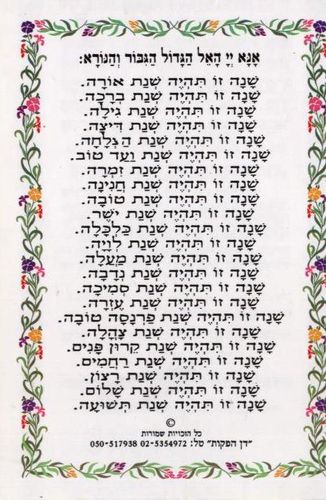 אָנָא יְיָ הָאֵל הַגָּדוֹל הַגִּבּוֹר וְהַנּוֹרָא:
שָׁנָה זוֹ תִּהְיֶה שְׁנַת אוֹרָה.
שָׁנָה זוֹ תִּהְיֶה שְׁנַת בְּרָכָה.
שָׁנָה זוֹ תִּהְיֶה שְׁנַת גִּילָה.
שָׁנָה זוֹ תִּהְיֶה שְׁנַת דִּיצָה.
שָׁנָה זוֹ תִּהְיֶה שְׁנַת הַצְלָחָה.
שָׁנָה זוֹ תִּהְיֶה שְׁנַת וַעַד טוֹב.
שָׁנָה זוֹ תִּהְיֶה שְׁנַת זִמְרָה.
שָׁנָה זוֹ תִּהְיֶה שְׁנַת חֲנִינָה.
שָׁנָה זוֹ תִּהְיֶה שְׁנַת טוֹבָה.
שָׁנָה זוֹ תִּהְיֶה שְׁנַת יֹשֶׁר.
שָׁנָה זוֹ תִּהְיֶה שְׁנַת כַּלְכָּלָה.
שָׁנָה זוֹ תִּהְיֶה שְׁנַת לְוָיָה.
שָׁנָה זוֹ תִּהְיֶה שְׁנַת מַעְלָה.
שָׁנָה זוֹ תִּהְיֶה שְׁנַת נְדָבָה.
שָׁנָה זוֹ תִּהְיֶה שְׁנַת סְמִיכָה.
שָׁנָה זוֹ תִּהְיֶה שְׁנַת עֶזְרָה.
שָׁנָה זוֹ תִּהְיֶה שְׁנַת פַּרְנָסָה טוֹבָה.
שָׁנָה זוֹ תִּהְיֶה שְׁנַת צָהֳלָה.
שָׁנָה זוֹ תִּהְיֶה שְׁנַת קֵרוּן פָּנִים.
שָׁנָה זוֹ תִּהְיֶה שְׁנַת רַחֲמִים.
שָׁנָה זוֹ תִּהְיֶה שְׁנַת רָצוֹן.
שָׁנָה זוֹ תִּהְיֶה שְׁנַת שָׁלוֹם.
שָׁנָה זוֹ תִּהְיֶה שְׁנַת תְּשׁוּעָה.
©
כל הזכויות שמורות
"דן הפקות" טל: 02-5354972 050-517938